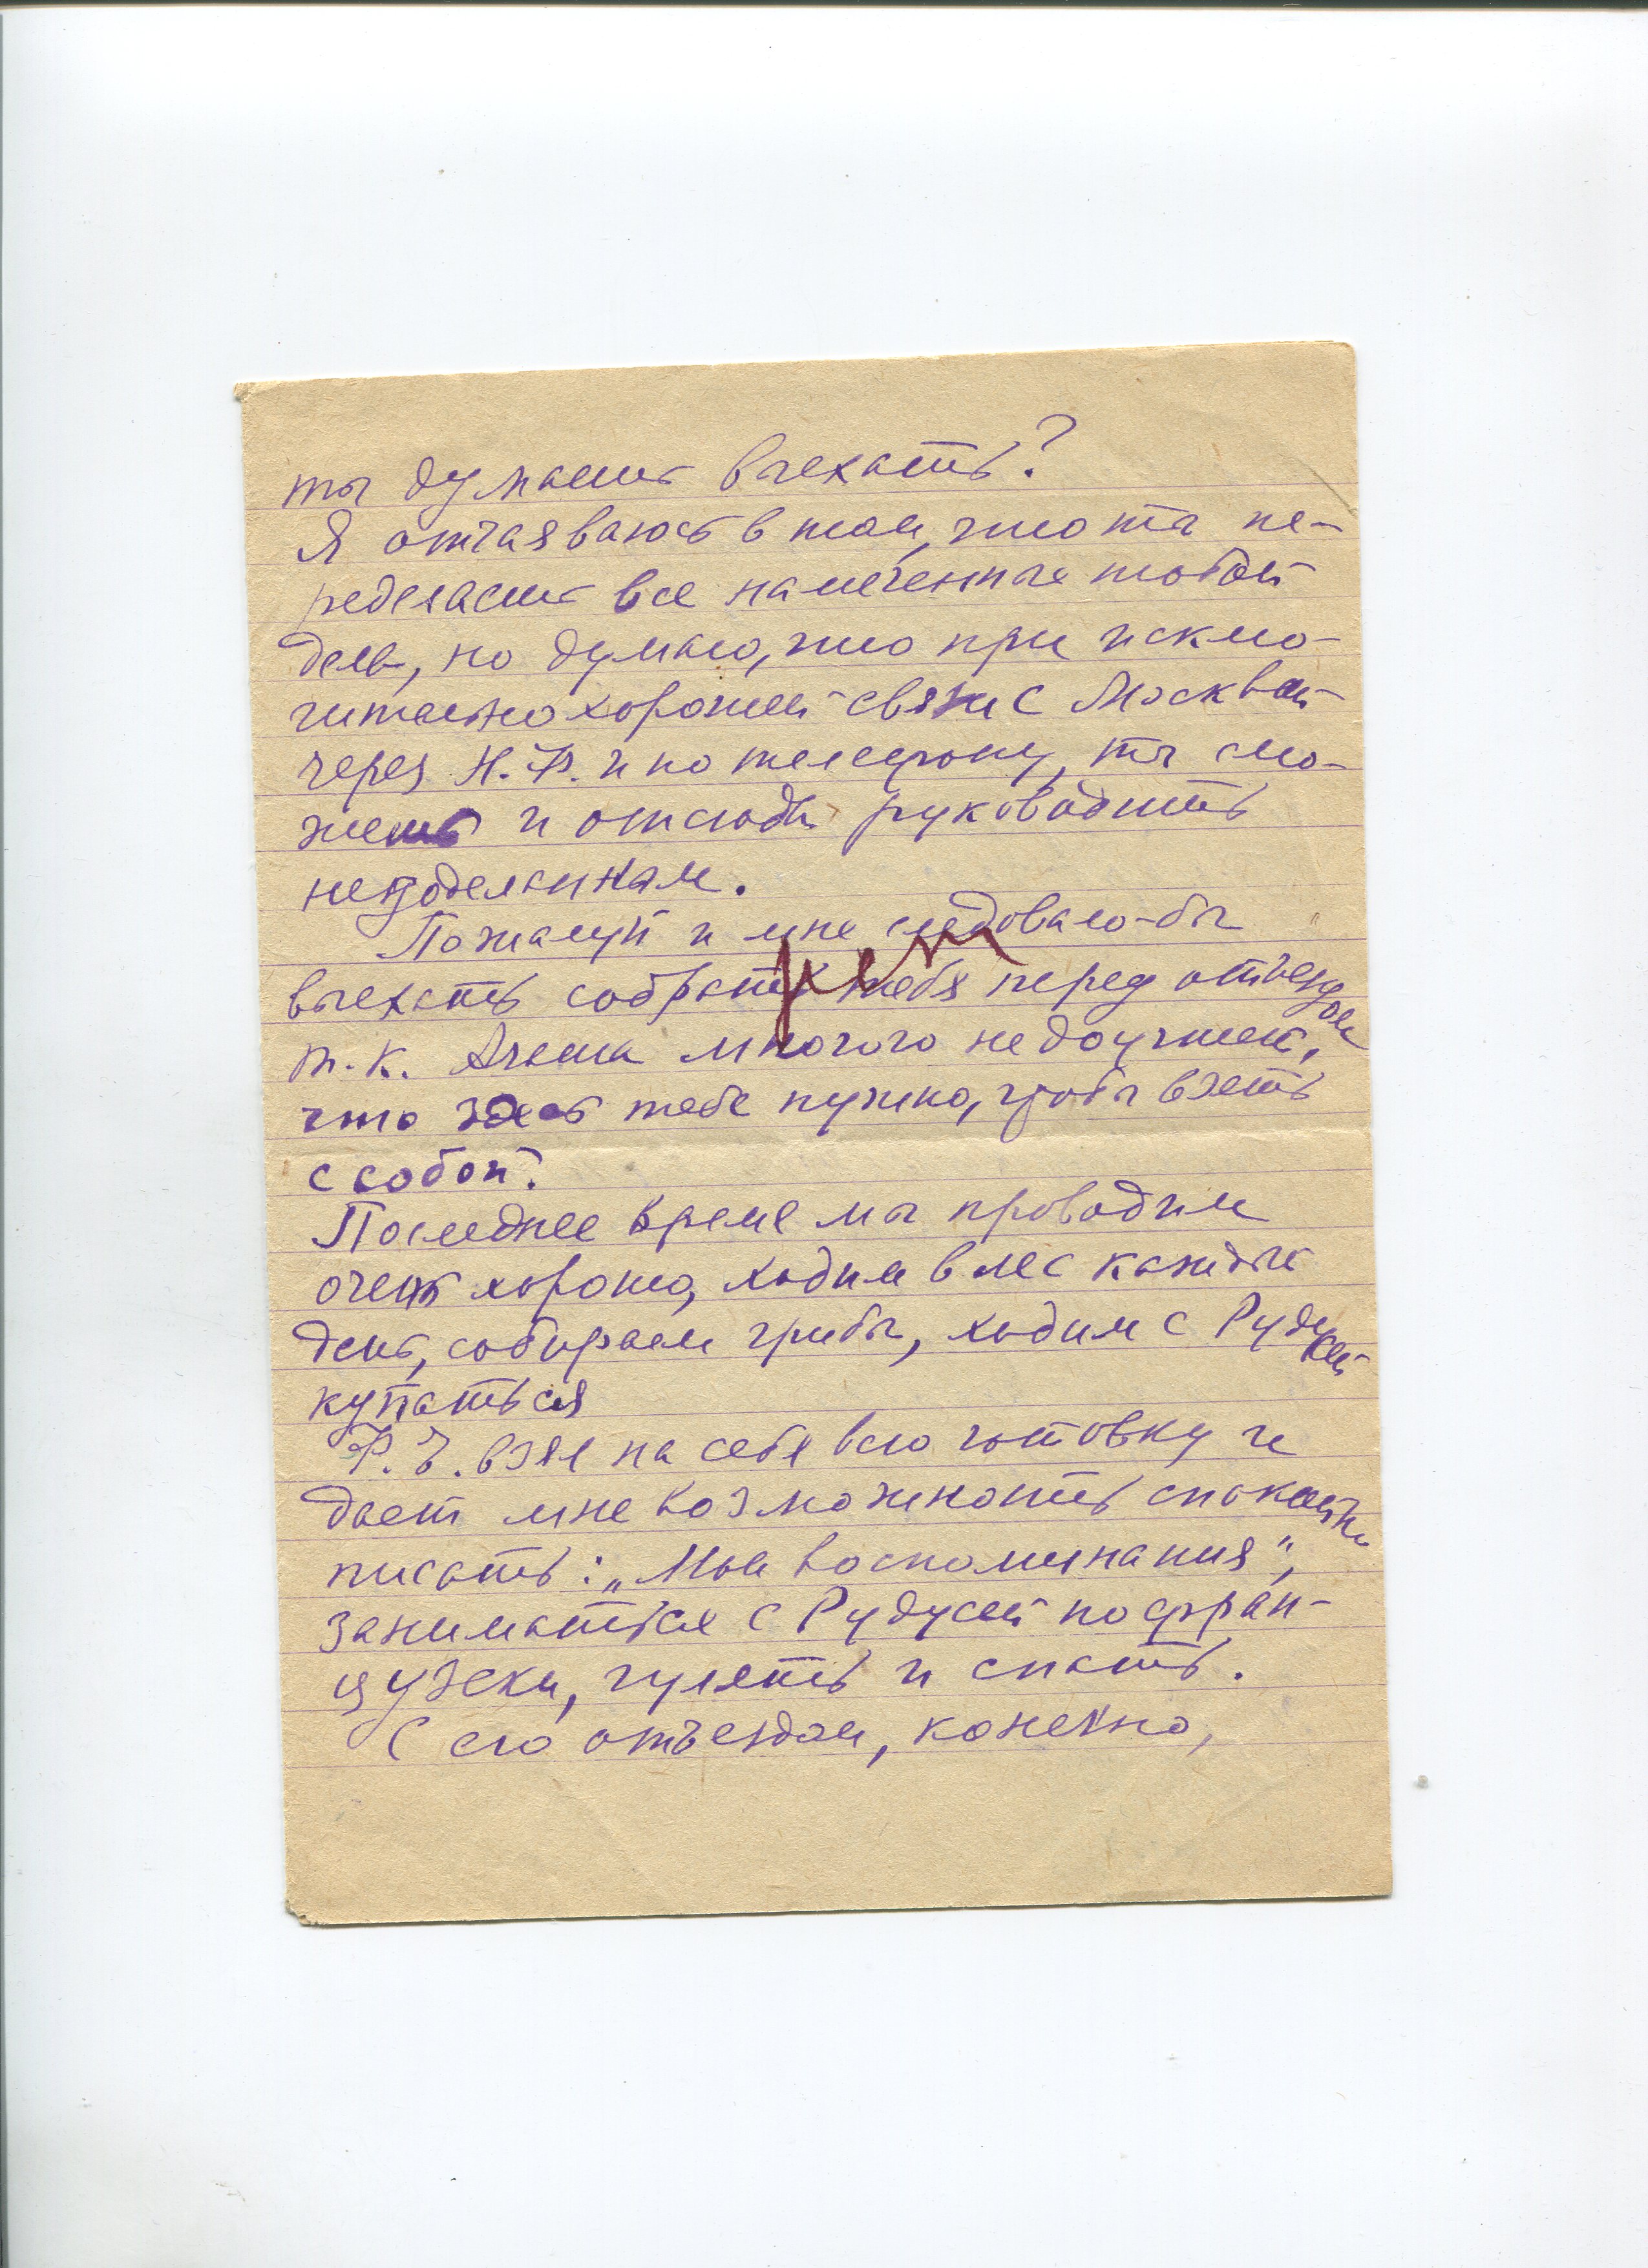 ты думаешь выехать?
Я отчаяваюсь в том, что ты пе-
ределаешь все намеченные тобой
дела, но думаю, что при исклю-
чительно хорошей связи с Москвой
через Н.Ф. и по телефону, ты смо-
жешь и отсюда руководить
неподелкинам.
Пожалуй и мне следовало-бы
выехать собрать тебя перед отъездом
т.к. много недоучтет,
что здесь тебе нужно, чтобы взять
с собой.
Последнее время мы проводим
очень хорошо, ходим в лес каждый
день, собираем грибы, ходим с Рудусей
купаться
взял на себя всю готовку и
дает мне возможность спокойно
писать: „Мои воспоминания“,
заниматься с Рудусей по фран-
цузски, гулять и спать.
С его отъездом, конечно,